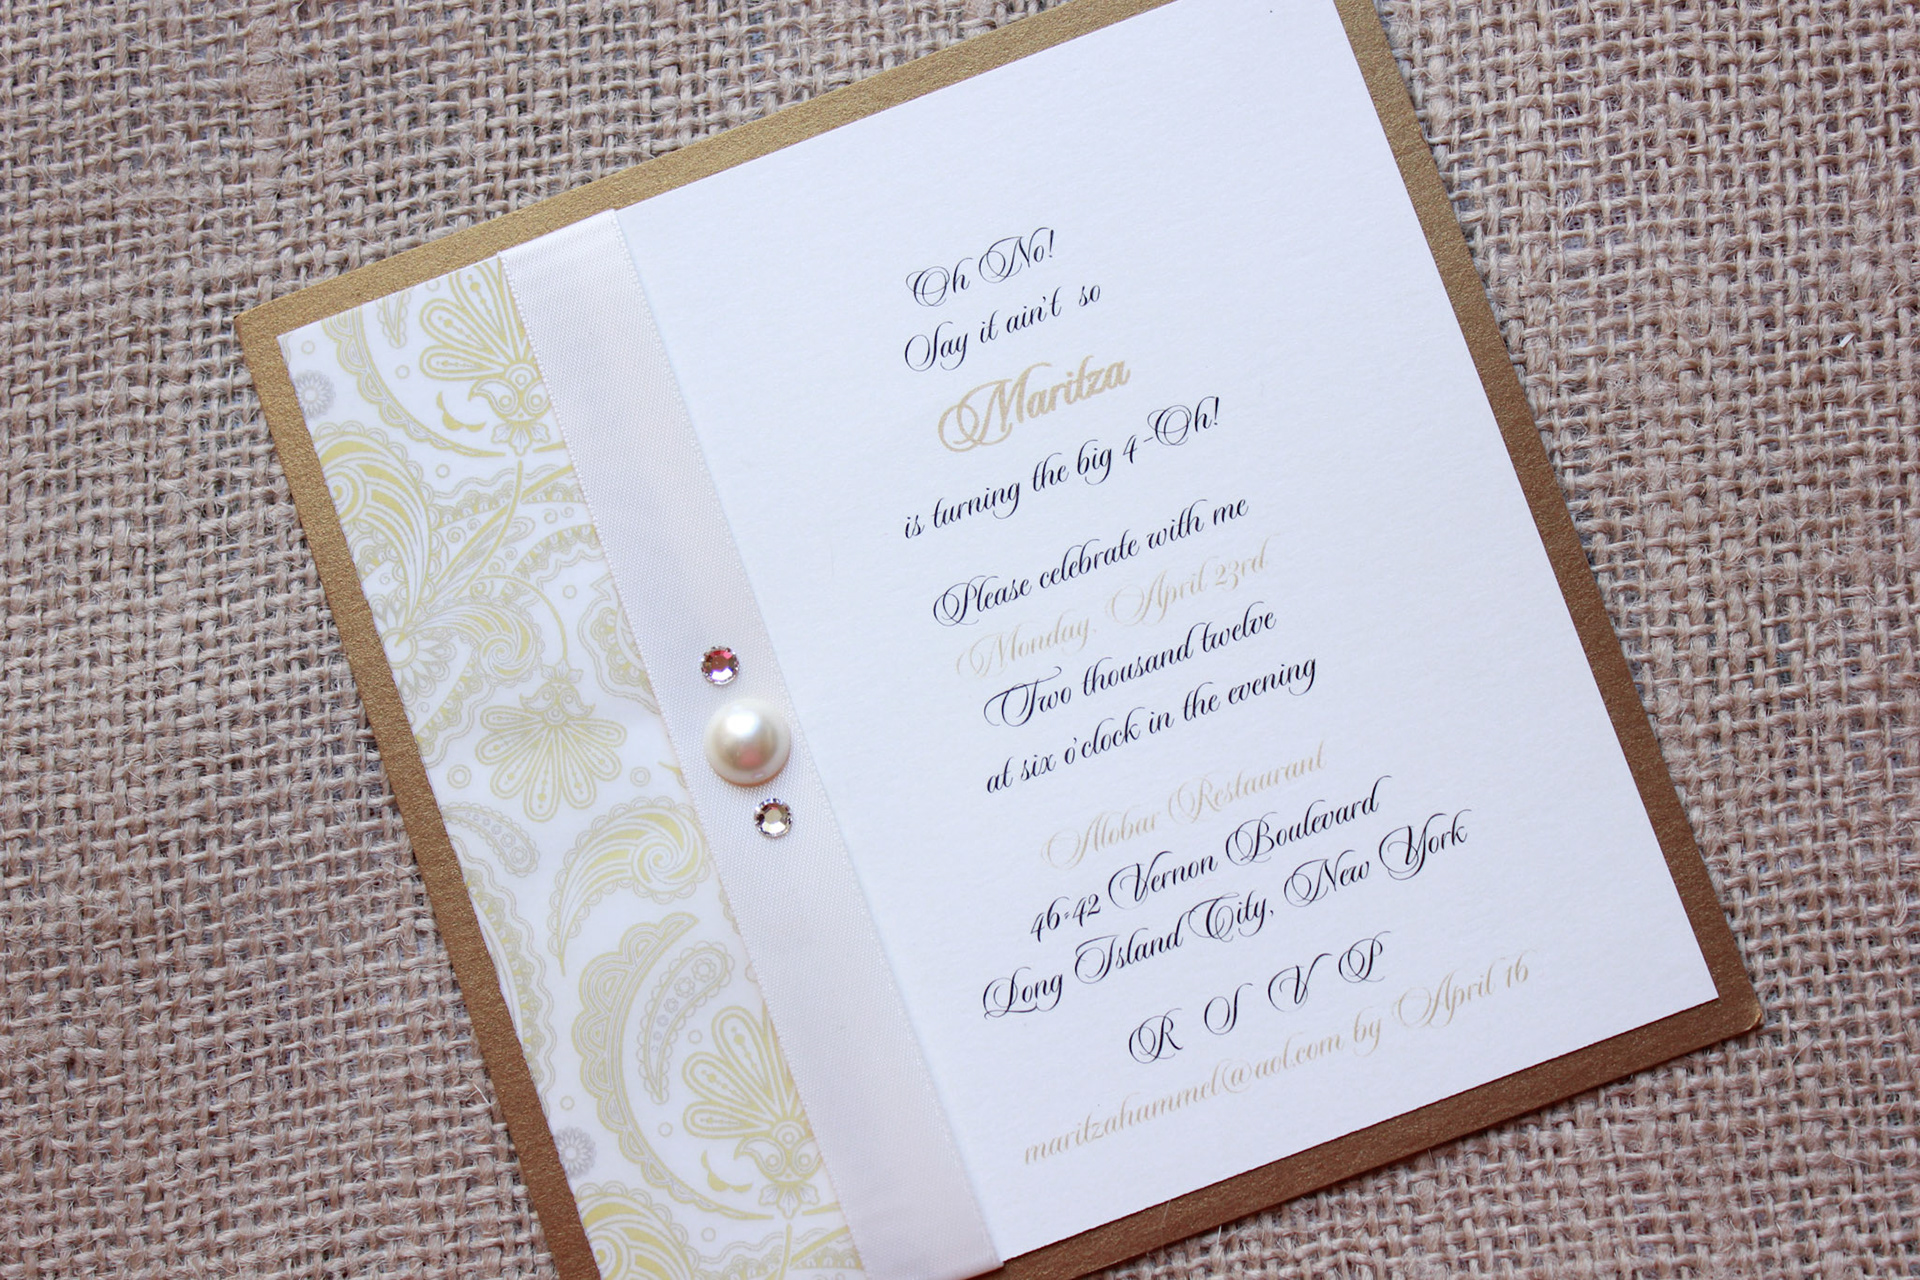 Oh No!
Say it ain't so
Maritza
is turning the big 4-Oh!
Please celebrate with me
Monday, April 23rd
Two thousand twelve
at six o'clock in the evening
Alobar Restaurant
46-42 Vernon Boulevard
Long Island City, New York
R S V P
maritzahummel@aol.com by April 16